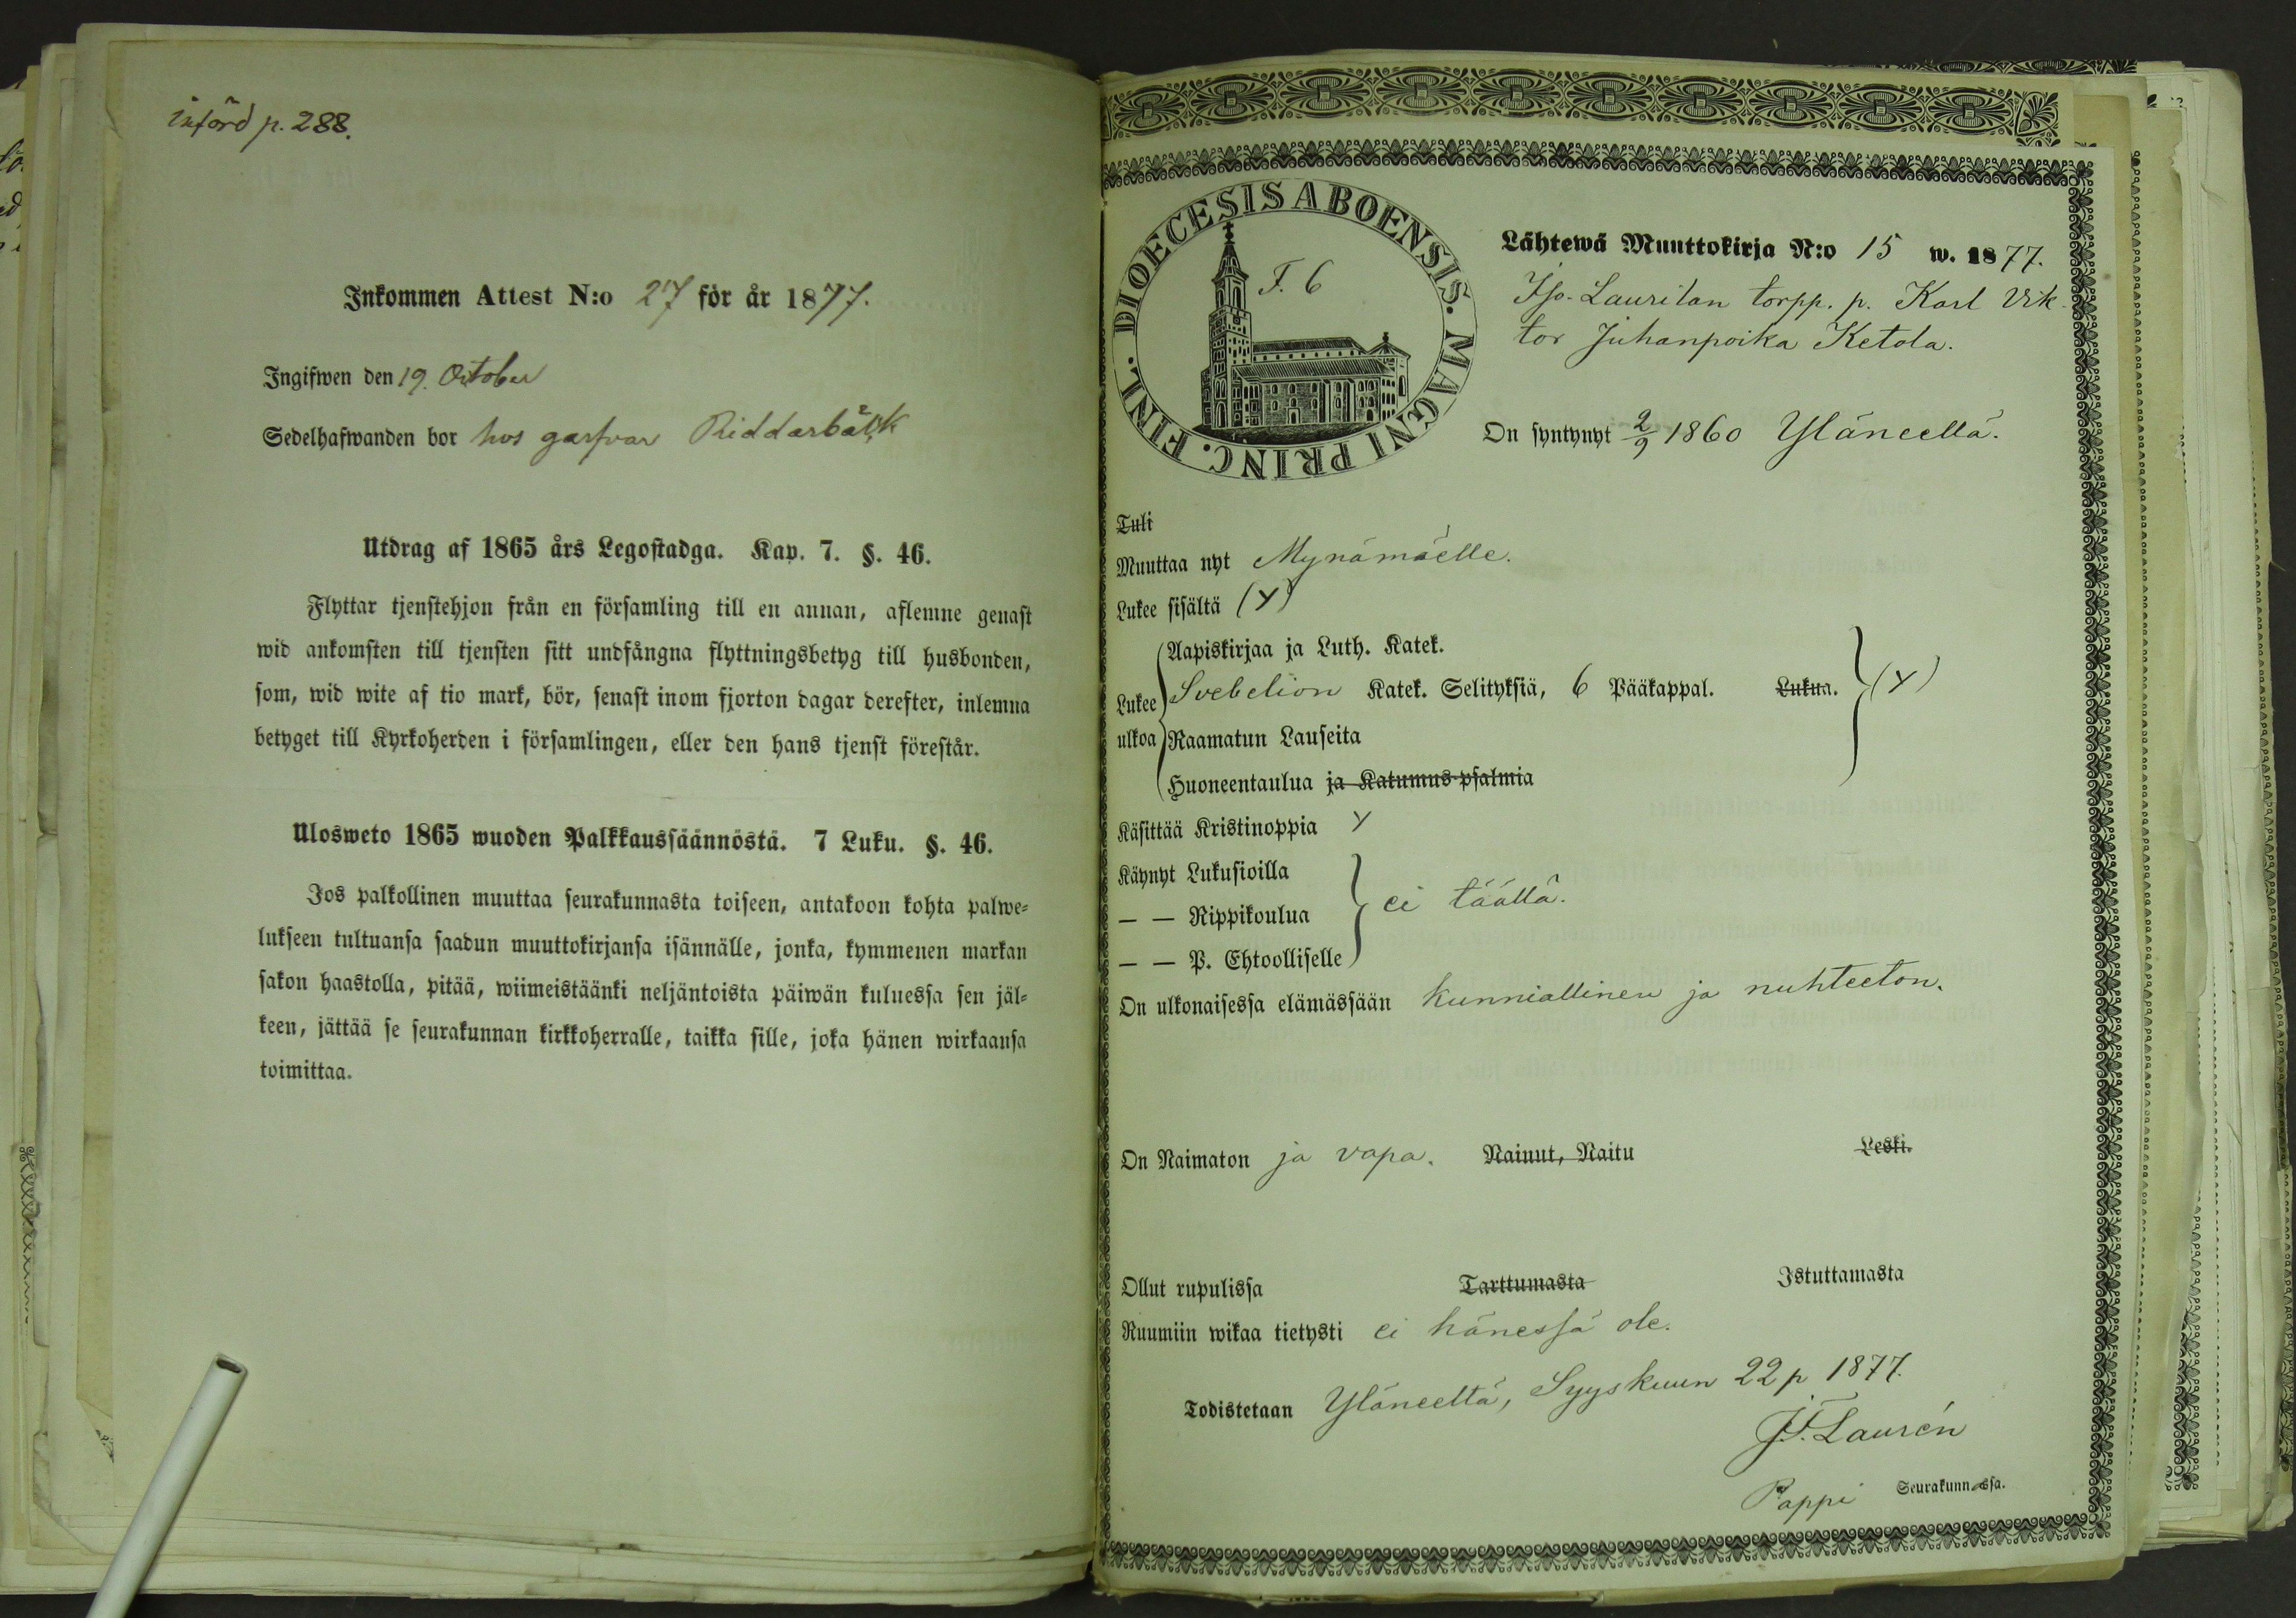 införd p. 288.
Inkommen Attest N:o 27 för år 1877.
Ingifwen den 19. October
Sedelhafwanden bor hos garfvar Riddarbäck
Utdrag af 1865 års Legostadga. Kap. 7. §. 46.
Flyttar tjenstehjon från en församling till en annan, aflemne genast
wid ankomsten till tjensten sitt undfångna flyttningsbetyg till husbonden,
som, wid wite af tio mark, bör, senast inom fjorton dagar derefter, inlemna
betyget till Kyrkoherden i församlingen, eller den hans tjenst förestår.
Ulosweto 1865 wuoden Palkkaussäännöstä. 7 Luku. §. 46.
Jos palkollinen muuttaa seurakunnasta toiseen, antakoon kohta palwe-
lukseen tultuansa saadun muuttokirjansa isännälle, jonka, kymmenen markan
sakon haastolla, pitää, wiimeistäänki neljäntoista päiwän kuluessa sen jäl-
keen, jättää se seurakunnan kirkkoherralle, taikka sille, joka hänen wirkaansa
toimittaa.
DIOECESIS ABOENSIS. MAGNI PRINC. FINL.
F. 6
Lähtewä Muuttokirja N:o 15 w. 1877.
Iso-Laurilan torpp. p. Karl Vik-
tor Juhanpoika Ketola.
On syntynyt 2/9 1860 Yläneellä.
Tuli
Muuttaa nyt Mynämäelle.
Lukee sisältä (Y)
Lukee ulkoa
Aapiskirjaa ja Luth. Katek.
Svebelion Katek. Selityksiä, 6 Pääkappal. Lukua. (Y)
Raamatun Lauseita
Huoneentaulua ja Katumus-psalmia
Käsittää Kristinoppia Y
Käynyt Lukusioilla
— — Rippikoulua ei täällä.
— — P. Ehtoolliselle
On ulkonaisessa elämässään kunniallinen ja nuhteeton.
On Naimaton ja vapa. Nainut, Naitu Leski.
Ollut rupulissa Tarttumasta Istuttamasta
Ruumiin wikaa tietysti ei hänessä ole.
Todistetaan Yläneeltä, Syyskuun 22 p 1877.
J.F. Laurén
Pappi Seurakunnassa.